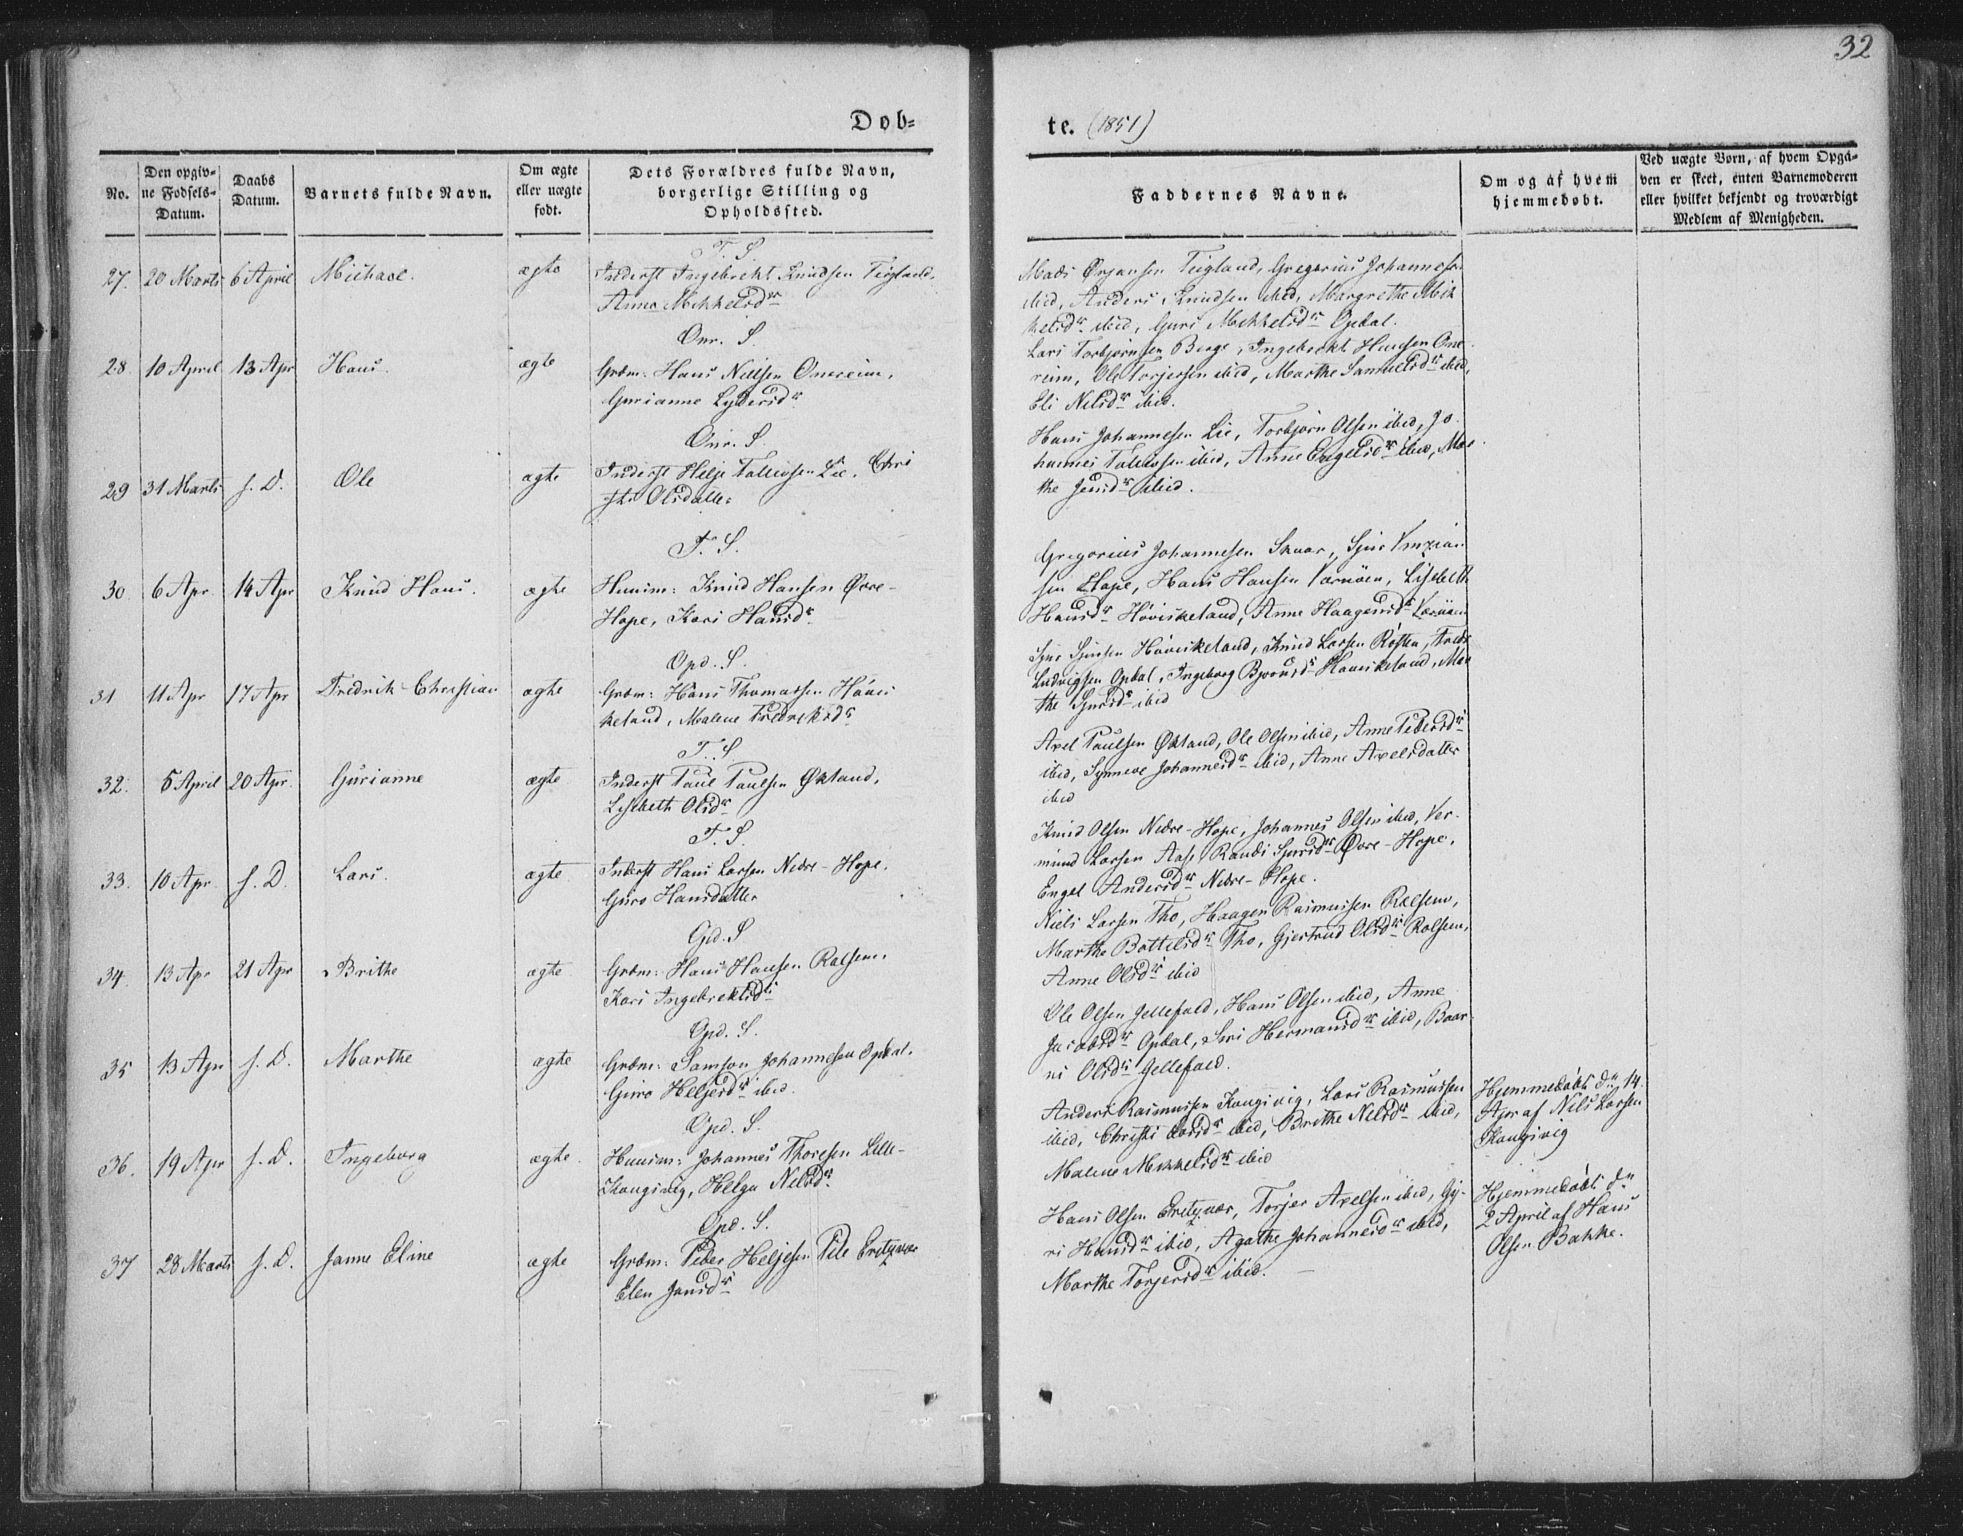 32
Døb=
te. (1851)
No.
Den opgiv-
ne Fødsels-
Datum.
Daabs
Datum.
Barnets fulde Navn.
Om ægte
eller uægte
født.
Dets Forældres fulde Navn,
borgerlige Stilling og
Opholdssted.
Faddernes Navne.
Om og af hvem
hjemmedøbt.
Ved uægte Børn, af hvem Opgi-
ven er skeet, enten Barnemoderen
eller hvilket bekjendt og troværdigt
Medlem af Menigheden.
T. S.
27. 20 Marts 6 April Michael. ægte Inderst Ingebrekt Knudsen Teigland,
Anna Mikkelsdr
Mads Ørjansen Teigland, Gregorius Johannesn
ibid, Anders Knudsen ibid, Margrethe Mik
kelsdr ibid, Guri Mikkelsdr Opdal.
Onr. S.
28. 10 April 13 Apr Hans. ægte Grbm: Hans Nilsen Onereim,
Gurianne Lydersdr
Lars Torbjørnsen Berge, Ingebrekt Hansen One
reim, Ole Torjersen ibid, Marthe Samuelsdr ibid,
Eli Nilsdr ibid.
Onr. S.
29 31 Marts s. D. Ole ægte Inderst Helje Tollevsen Lie, Chri
sti Olsdatter
Hans Johannesen Lie, Torbjørn Olsen ibid, Jo
hannes Tollevsen ibid, Anne Engelsdr ibid, Mar
the Jensdr ibid.
T. S.
30. 6 Apr. 14 Apr Knud Hans. ægte Huusm: Knud Hansen Øvre-
Hope, Kari Hansdr
Gregorius Johannesen Skaar, Sjur
sen Hope, Hans Hansen Varnøen, Lisbeth
Hansdr Höviskeland, Anne Haagensdr Varnøen
Opd. S.
31 11 Apr 17 Apr Fredrik Christian ægte Grbm: Hans Thomassen Hövis
keland, Malene Fredriksdr
Sjur Sjursen Höviskeland, Knud Larsen Røtten, Fredr
Ludvigsen Opdal, Ingeborg Bjørnsdr Höviskeland, Mar
the Sjursdr ibid
T. S
32. 5 April 20 Apr. Gurianne ægte Inderst Paul Paulsen Økland,
Lisbeth Olsdr
Axel Paulsen Økland, Ole Olsen ibid, Anne Pedersdr
ibid, Synneve Johannesdr ibid, Anne Axelsdatter
ibid
T. S.
33. 10 Apr. s. D. Lars. ægte Inderst Hans Larsen Nedre-Hope,
Guro Hansdatter
Knud Olsen Nedre-Hope, Johannes Olsen ibid, Ver-
mund Larsen Aase, Randi Sjursdr Øvre-Hope,
Engel Andersdr Nedre-Hope.
Gpd. S
34. 13 Apr 21 Apr Brithe ægte Grbm: Hans Hansen Rolsem.
Kari Ingebrektsdr
Niels Larsen Tho, Haagen Rasmussen Rolsem,
Marthe Bottelsdr Tho, Gjertrud Olsdr Rolsem,
Anne Olsdr ibid
Opd. S.
35 13 Apr s. D. Marthe ægte Grbm: Samson Johannesen Opdal.
Guro Heljesdr ibid.
Ole Olsen Gellefald, Hans Olsen ibid, Anne
Jacobsdr Opdal, Siri Hermansdr ibid, Baar
ni Olsdr Gellefald.
Opd. S.
36. 19 Apr s. D. Ingeborg ægte. Huusm: Johannes Thoresen Lille-
Kongsvig, Helga Nilsdr
Anders Rasmussen Kongsvig, Lars Rasmussen
ibid, Christi Larsdr ibid, Brithe Nilsdr ibid,
Malene Mikkelsdr ibid
Hjemmedöbt dn 14
Apr af Nils Larsen
Kongsvig
Opd. S.
37 28 Marts s. D. Janne Eline ægte Grbm: Peder Heljesen Pile
Elen Jansdr
Hans Olsen , Torjer Axelsen ibid, Gy-
ri Hansdr ibid, Agathe Johannesdr ibid,
Marthe Torjersdr ibid.
Hjemmedöbt dn
2 April af Hans
Olsen Bakke.